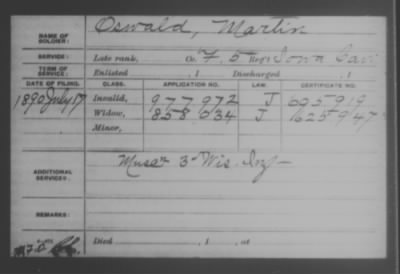 NAME OF SOLDIER: Oswald, Martin
SERVICE: Late rank, Co. F, 5 Reg't Iowa Cav
TERM OF SERVICE: Enlisted , 1 Discharged , 1
DATE OF FILING. CLASS. APPLICATION NO. LAW. CERTIFICATE NO.
1890 July 17 Invalid, 977972 J 695919
Widow, 858034 J 625947
Minor,
ADDITIONAL SERVICES: 3 Wis. Inf
REMARKS:
Died , 1 , at